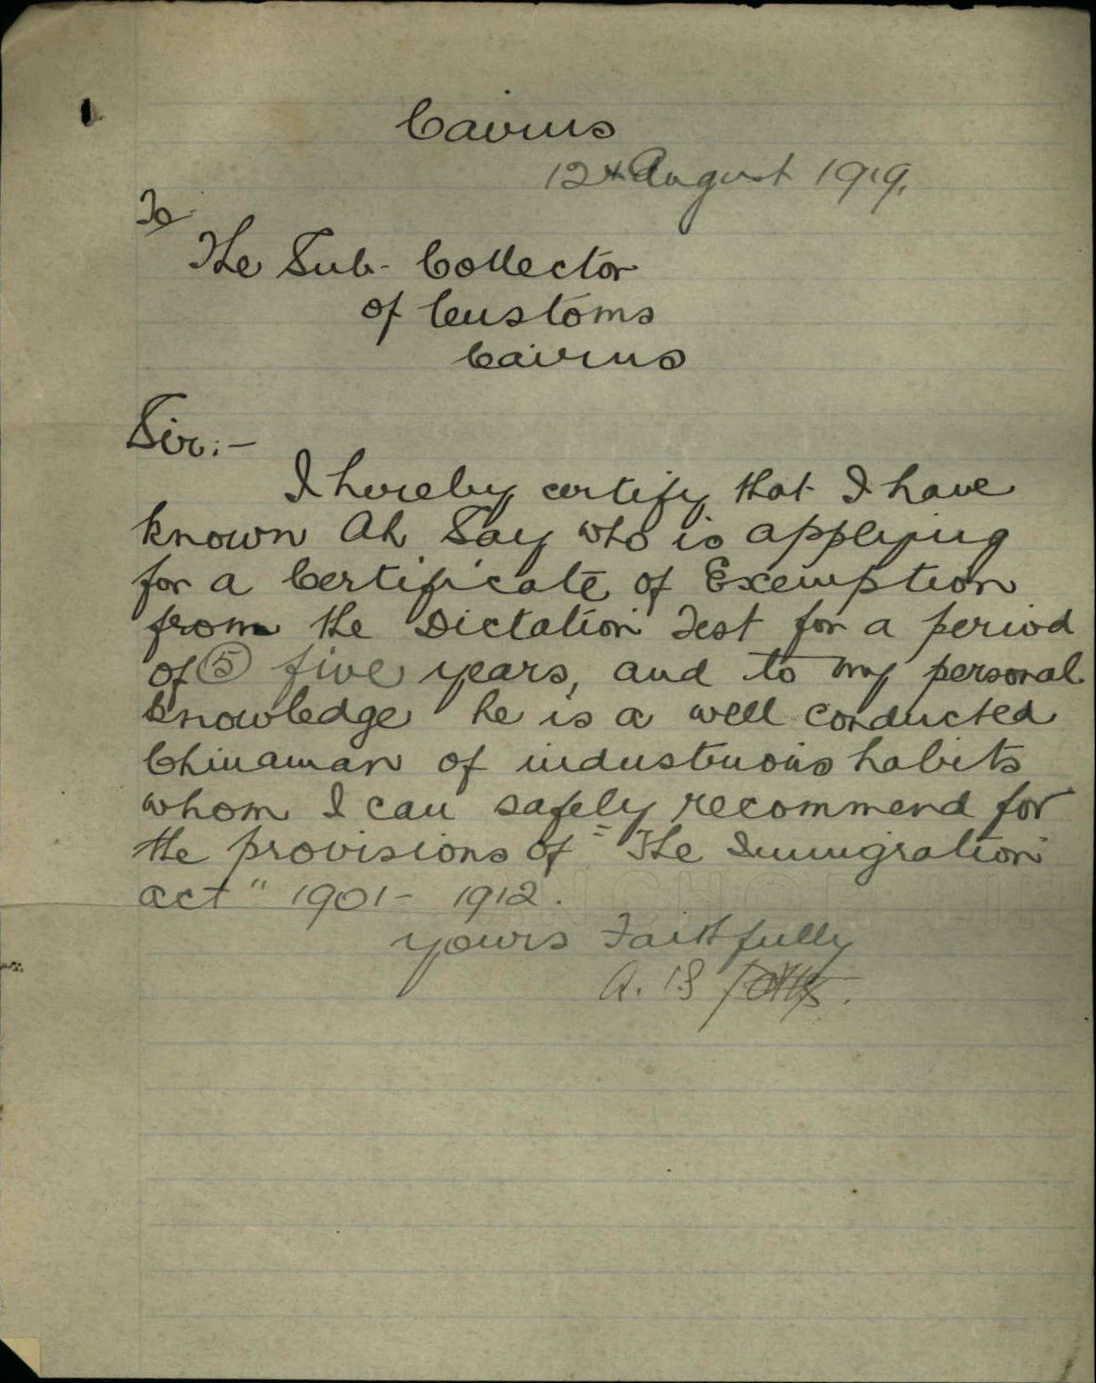 Cairns
12th August 1919.
To
The Sub-Collector
of Customs
Cairns
Sir:-
I hereby certify that I have
known Ah Say who is applying
for a Certificate of Exemption
from the Dictation Test for a period
of (5) five years, and to my personal
knowledge he is a well conducted
Chinaman of industruous habits
whom I can safely recommend for
the provisions of "The Immigration
act" 1901 - 1912.
yours Faithfully
A. B